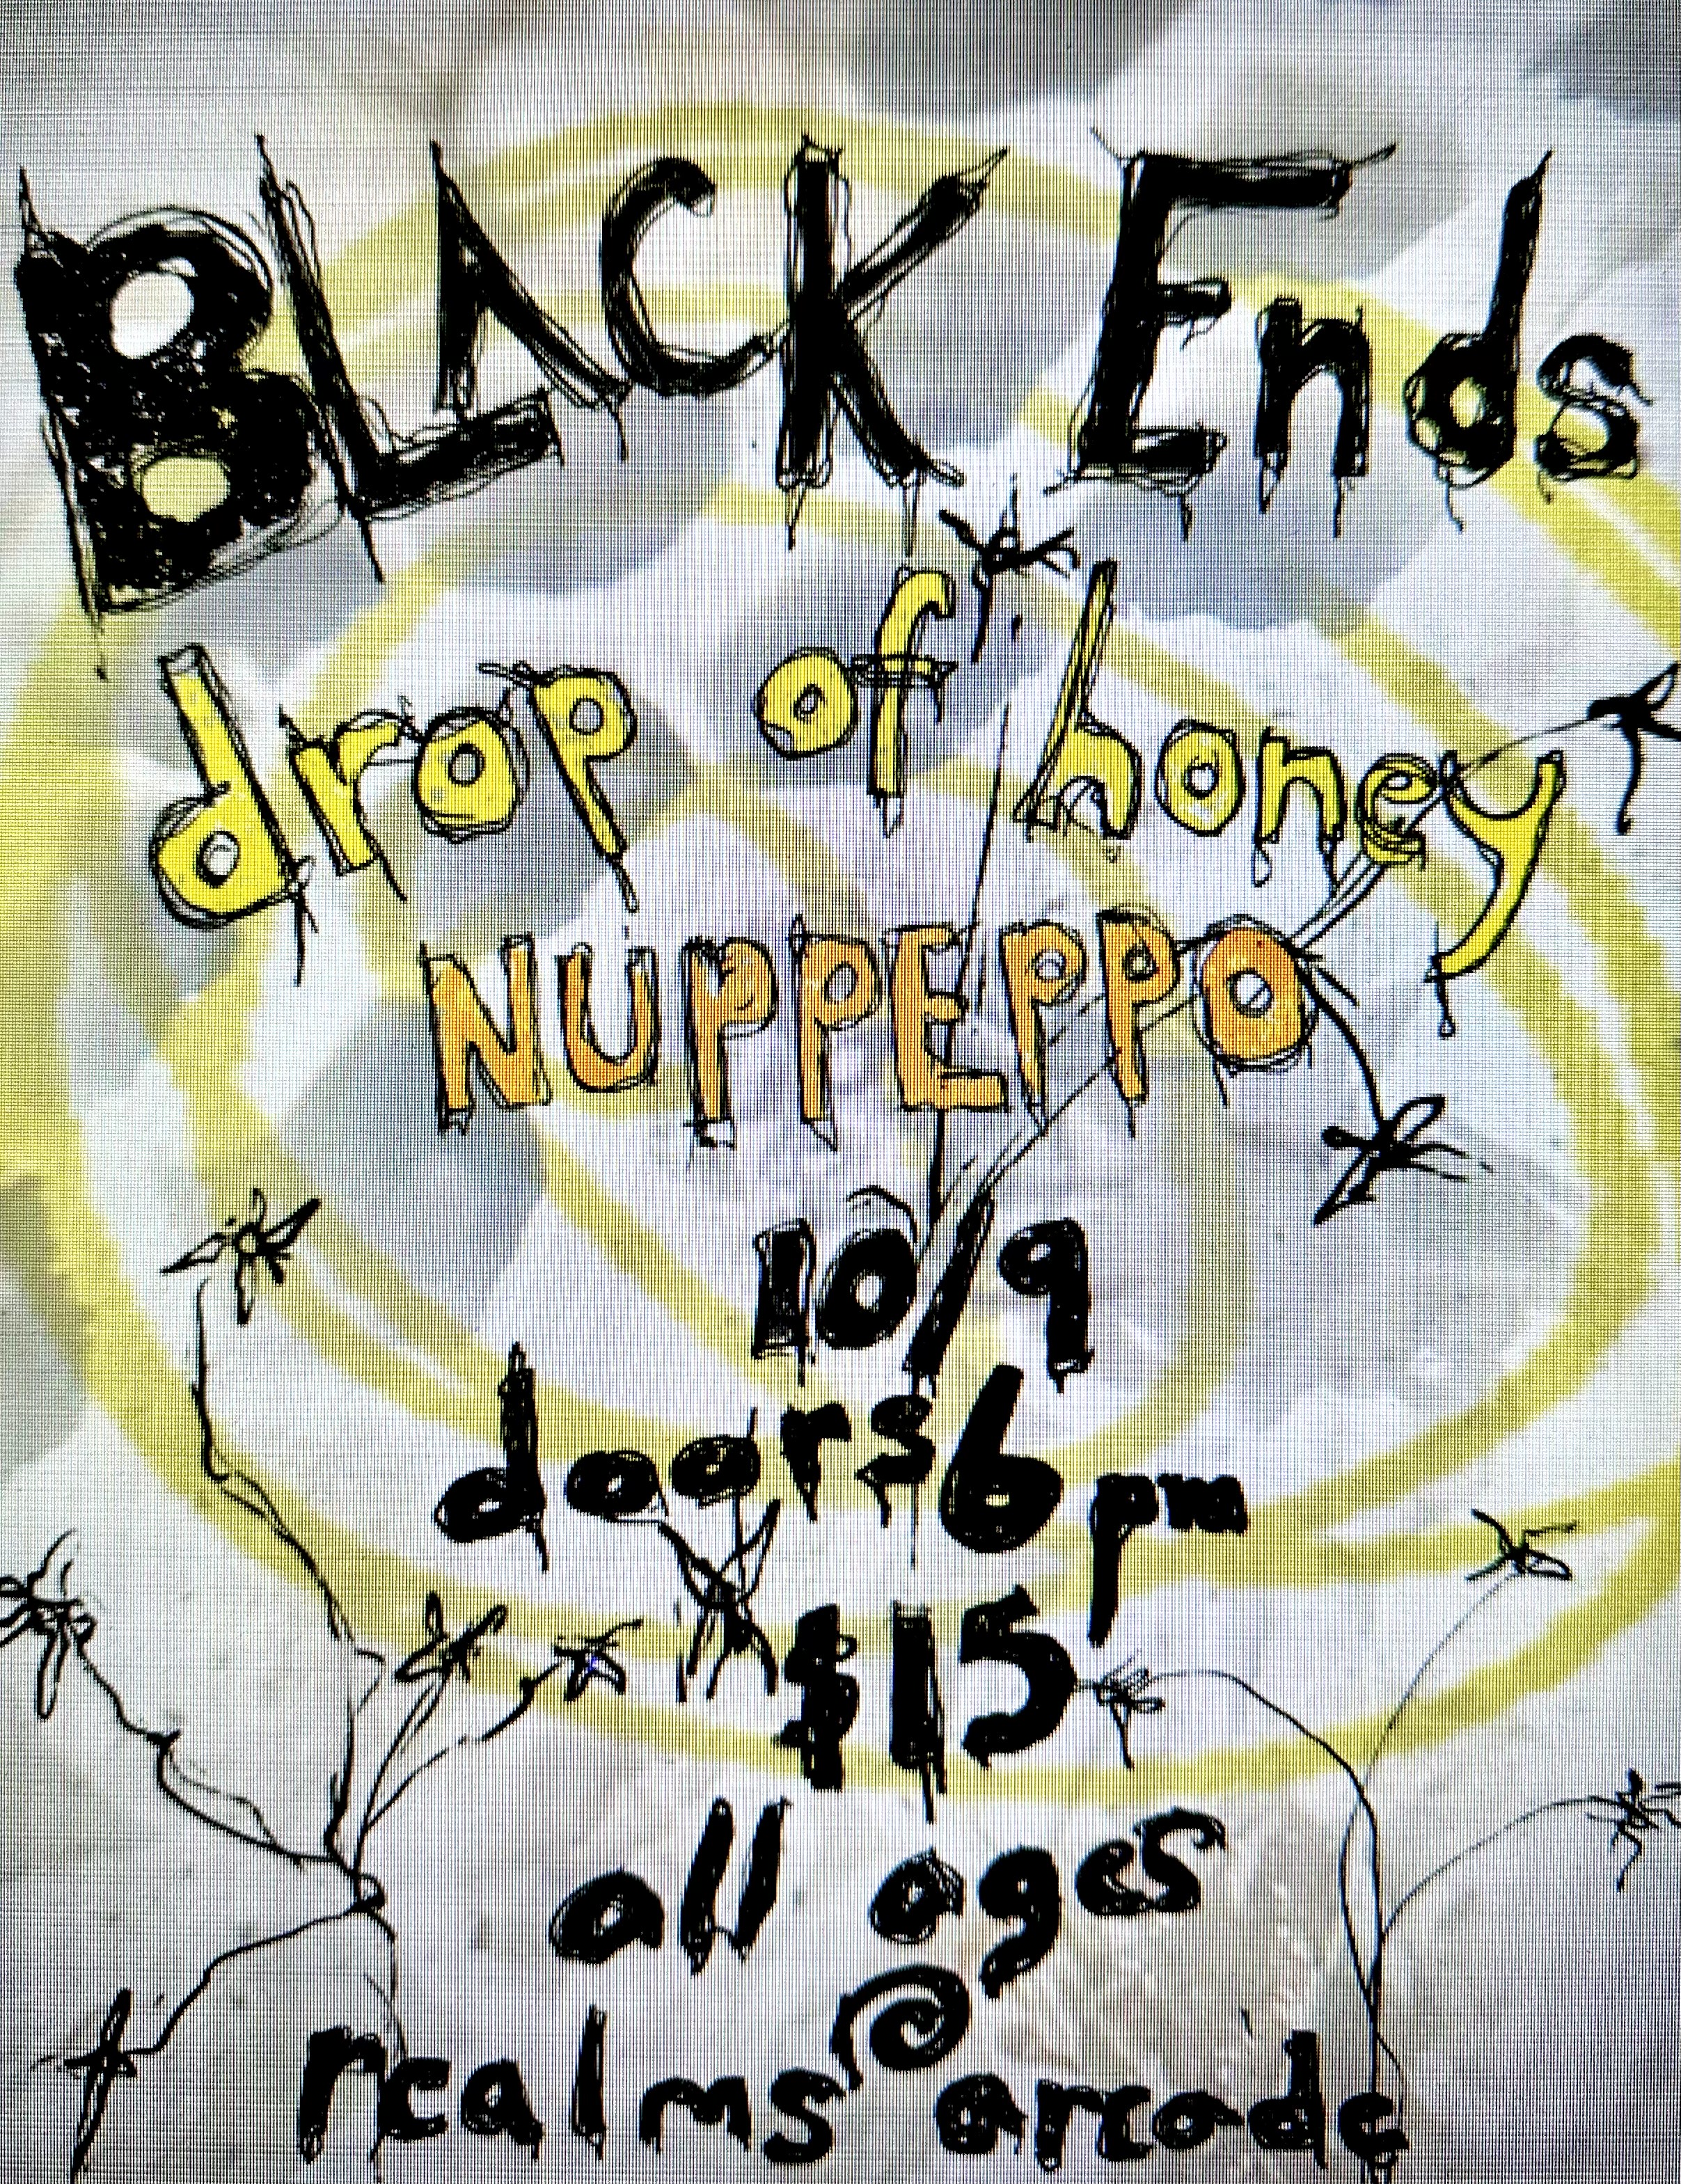 BLACK Ends
drop of honey
NUPPEPPO
10/9
doors 6pm
$15
all ages
@
realms arcade